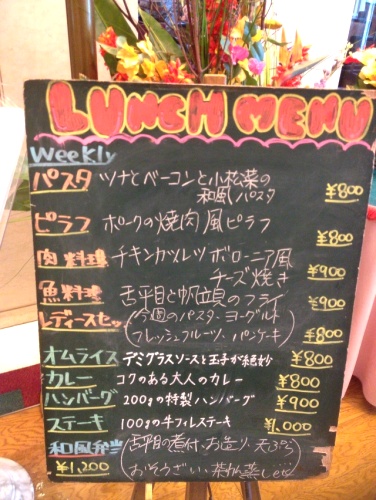 LUNCH MENU
Weekly
パスタ ツナとベーコンと小松菜の
和風パスタ ¥800
ピラフ ポークの焼肉風ピラフ
¥800
肉料理 チキンカツレツ ボローニア風
チーズ焼き ¥900
魚料理 舌平目と帆立貝のフライ ¥900
レディースセット (今週のパスタ、ヨーグルト
フレッシュフルーツ、パンケーキ) ¥800
オムライス デミグラスソースと玉子が絶妙 ¥800
カレー コクのある大人のカレー ¥800
ハンバーグ 200gの特製ハンバーグ ¥900
ステーキ 100gの牛フィレステーキ ¥1,000
和風弁当 (舌平目の煮付、お造り、天ぷら
¥1,200 おそうざい、茶わん蒸し